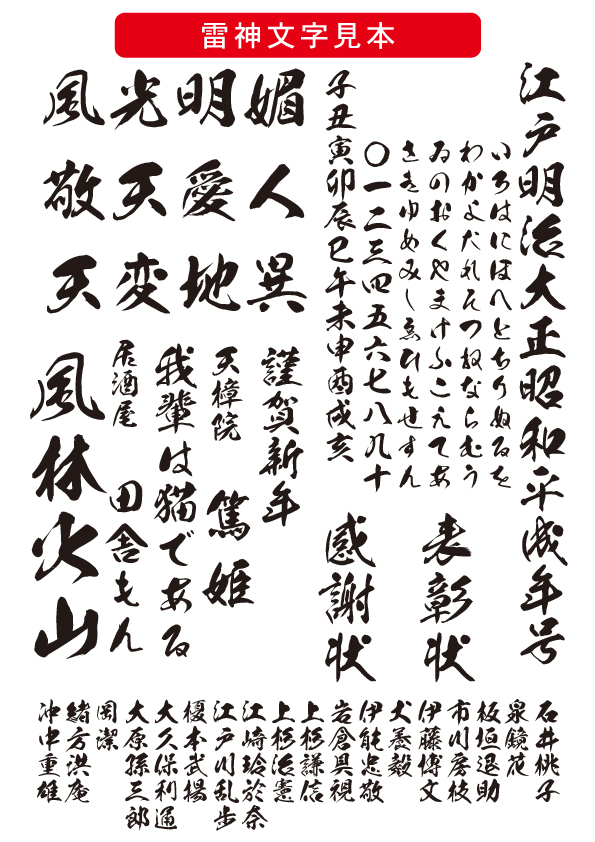 雷神文字見本
江戸明治大正昭和平成年号
いろはにほへとちりぬるを
わかよたれそつねならむう
ゐのおくやまけふこえてあ
さきゆめみしゑひもせすん
〇一二三四五六七八九十
子丑寅卯辰巳午未申酉戌亥
表彰状
感謝状
媚人異
明愛地
光天変
風敬天
謹賀新年
天樟院 篤姫
我輩は猫である
居酒屋 田舎もん
風林火山
石井桃子
泉鏡花
板垣退助
市川房枝
伊藤博文
犬養毅
伊能忠敬
岩倉具視
上杉謙信
上杉治憲
江崎玲於奈
江戸川乱歩
榎本武揚
大久保利通
大原孫三郎
岡潔
緒方洪庵
沖中重雄